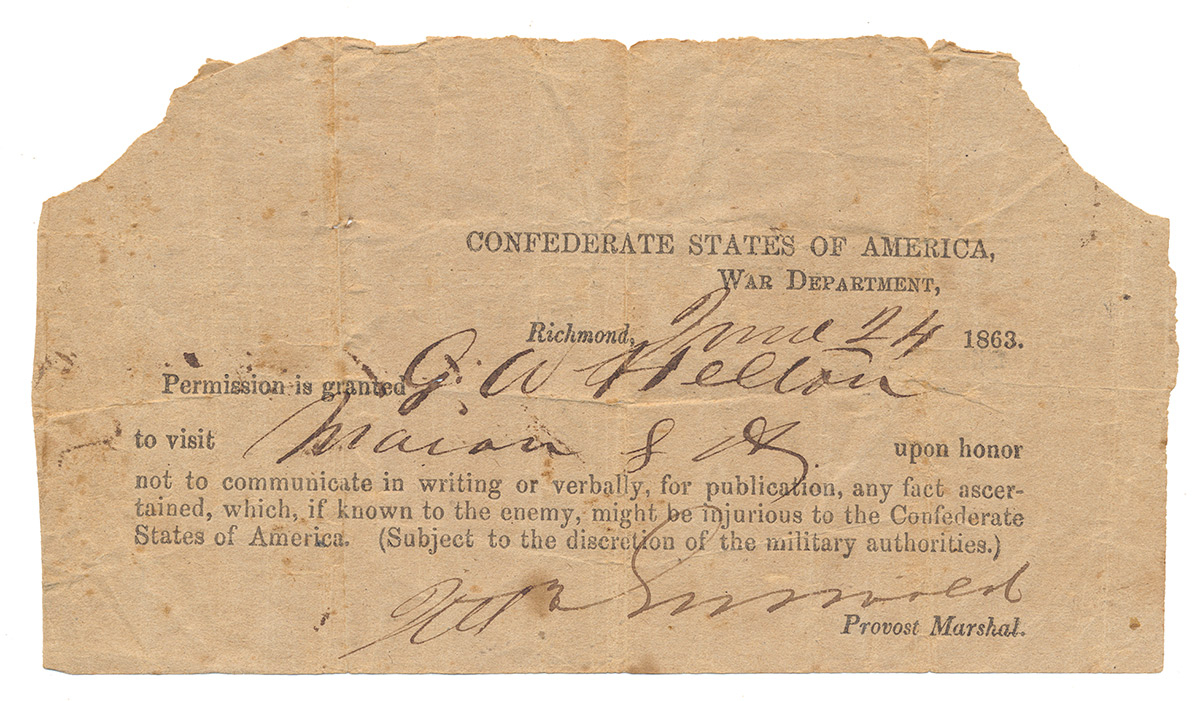 CONFEDERATE STATES OF AMERICA,
WAR DEPARTMENT,
Richmond, June 24 1863.
Permission is granted G. W Helton
to visit Macon upon honor
not to communicate in writing or verbally, for publication, any fact ascer-
tained, which, if known to the enemy, might be injurious to the Confederate
States of America. (Subject to the discretion of the military authorities.)
Provost Marshal.